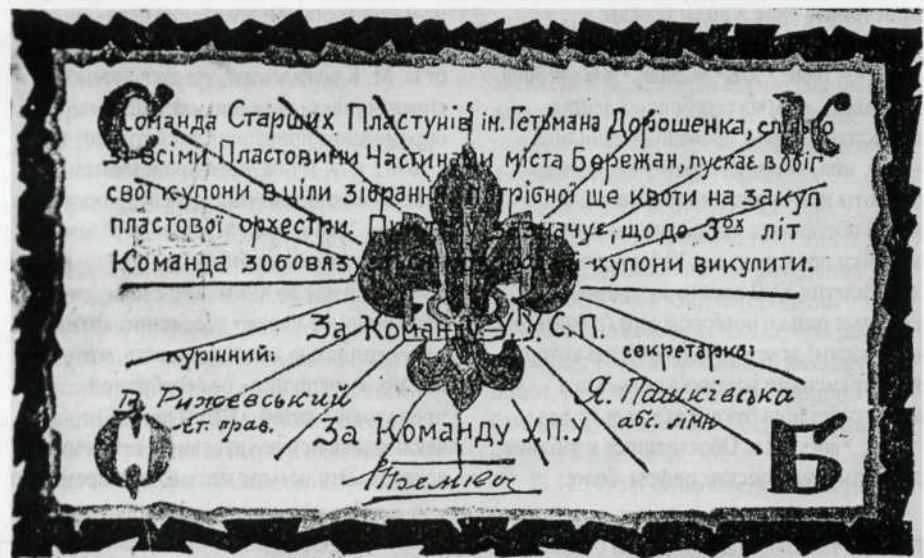 Команда Старших Пластунів ім. Гетьмана Дорошенка, спільно
зі всіми Пластовими Частинами міста Бережан, пускає в обіг
свої купони в ціли зібрання потрібної ще квоти на закуп
пластової орхестри. При зазначує, що до 3ох літ
Команда зобовязується купони викупити.
За Команду У.У.С.П.
курінний: секретарка:
В. Рижевський Я. Пашківська
ст. прав. абс. гімн.
За Команду ХПУ
С К О Б